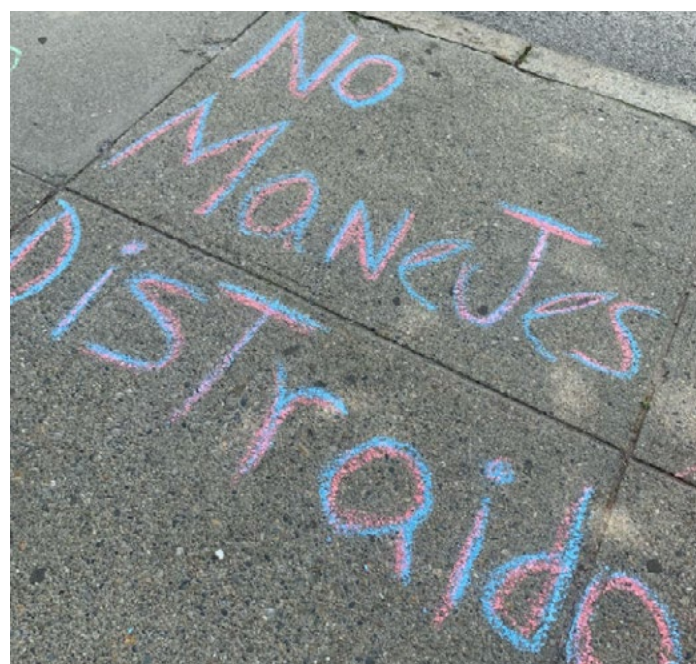 No
ManeJes
DisTraido